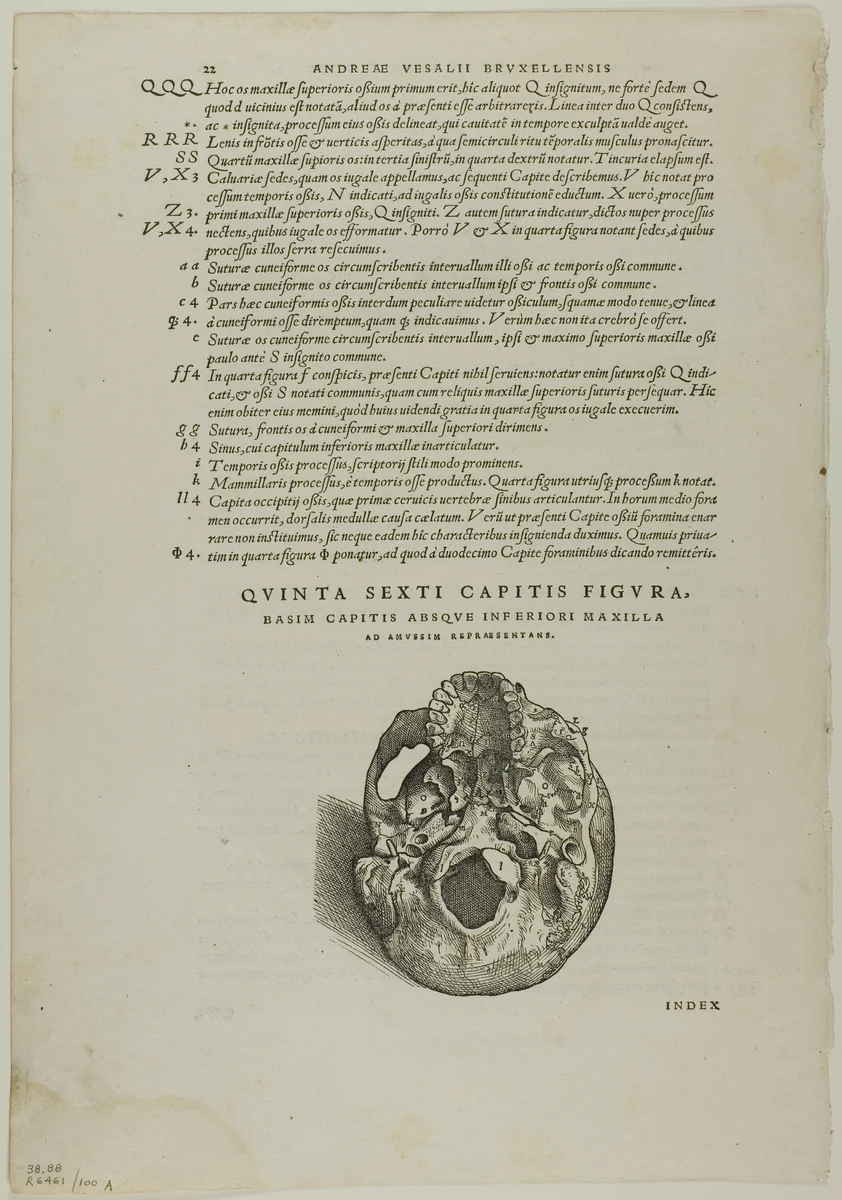 22 ANDREAE VESALII BRVXELLENSIS
QQQ Hoc os maxillæ ſuperioris oßium primum erit, hîc aliquot Q inſignitum, ne fortè ſedem Q
quod d uicinius eſt notatã, aliud os à præſenti eſſe arbitrareris. Linea inter duo Q conſiſtens,
*. ac * inſignita, proceſſum eius oßis delineat, qui cauitatẽ in tempore exculptã ualde auget.
R R R Lenis in frõtis oſſe & uerticis aſperitas, à qua ſemicirculi ritu tẽporalis muſculus pronaſcitur.
SS Quartũ maxillæ ſupioris os: in tertia ſiniſtrũ, in quarta dextrũ notatur. T incuria elapſum eſt.
V, X 3 Caluariæ ſedes, quam os iugale appellamus, ac ſequenti Capite deſcribemus. V hîc notat pro
ceſſum temporis oßis, N indicati, ad iugalis oßis conſtitutionẽ eductum. X uerò, proceſſum
Z 3. primi maxillæ ſuperioris oßis, Q inſigniti. Z autem ſutura indicatur, dictos nuper proceſſus
V, X 4. nectens, quibus iugale os efformatur. Porrò V & X in quarta figura notant ſedes, à quibus
proceſſus illos ſerra reſecuimus.
a a Suturæ cuneiforme os circumſcribentis interuallum illi oßi ac temporis oßi commune.
b Suturæ cuneiforme os circumſcribentis interuallum ipſi & frontis oßi commune.
c 4 Pars hæc cuneiformis oßis interdum peculiare uidetur oßiculum, ſquamæ modo tenue, & linea
ꝗ 4. à cuneiformi oſſe diremptum, quam ꝗ indicauimus. Verùm hæc non ita crebrò ſe offert.
e Suturæ os cuneiforme circumſcribentis interuallum, ipſi & maximo ſuperioris maxillæ oßi
paulo antè S inſignito commune.
ff 4 In quarta figura f conſpicis, præſenti Capiti nihil ſeruiens: notatur enim ſutura oßi Q indi-
cati, & oßi S notati communis, quam cum reliquis maxillæ ſuperioris ſuturis perſequar. Hîc
enim obiter eius memini, quòd huius uidendi gratia in quarta figura os iugale execuerim.
g g Sutura, frontis os à cuneiformi & maxilla ſuperiori dirimens.
h 4 Sinus, cui capitulum inferioris maxillæ inarticulatur.
i Temporis oßis proceſſus, ſcriptorij ſtili modo prominens.
k Mammillaris proceſſus, è temporis oſſe productus. Quarta figura utriuſq; proceßum k notat.
ll 4 Capita occipitij oßis, quæ primæ ceruicis uertebræ ſinibus articulantur. In horum medio fora
. men occurrit, dorſalis medullæ cauſa cælatum. Verũ ut præſenti Capite oßiũ foramina enar
rare non inſtituimus, ſic neque eadem hîc characteribus inſignienda duximus. Quamuis priua-
Φ 4. tim in quarta figura Φ ponatur, ad quod à duodecimo Capite foraminibus dicando remittêris.
QVINTA SEXTI CAPITIS FIGVRA,
BASIM CAPITIS ABSQVE INFERIORI MAXILLA
AD AMVSSIM REPRAESENTANS.
INDEX
38.88
R6461/100 A